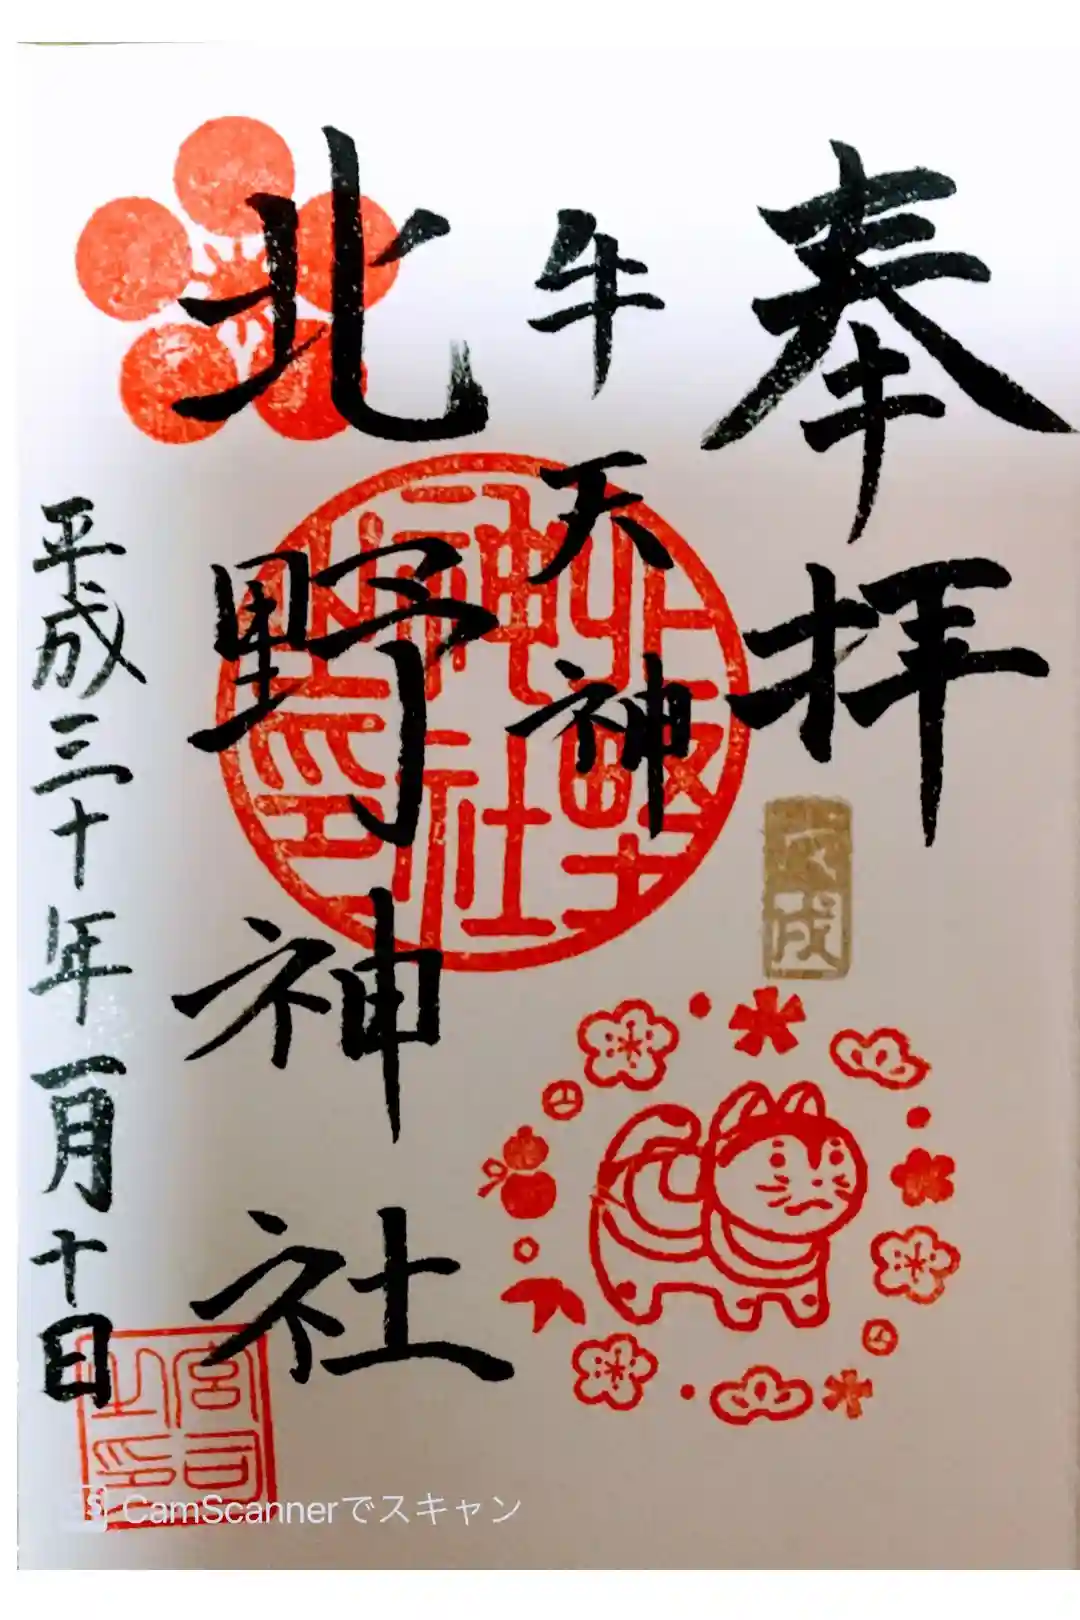 奉拝
牛天神
北野神社
平成三十年一月十日
戊戌
北野
神社
之印
宮司
之印
CamScannerでスキャン